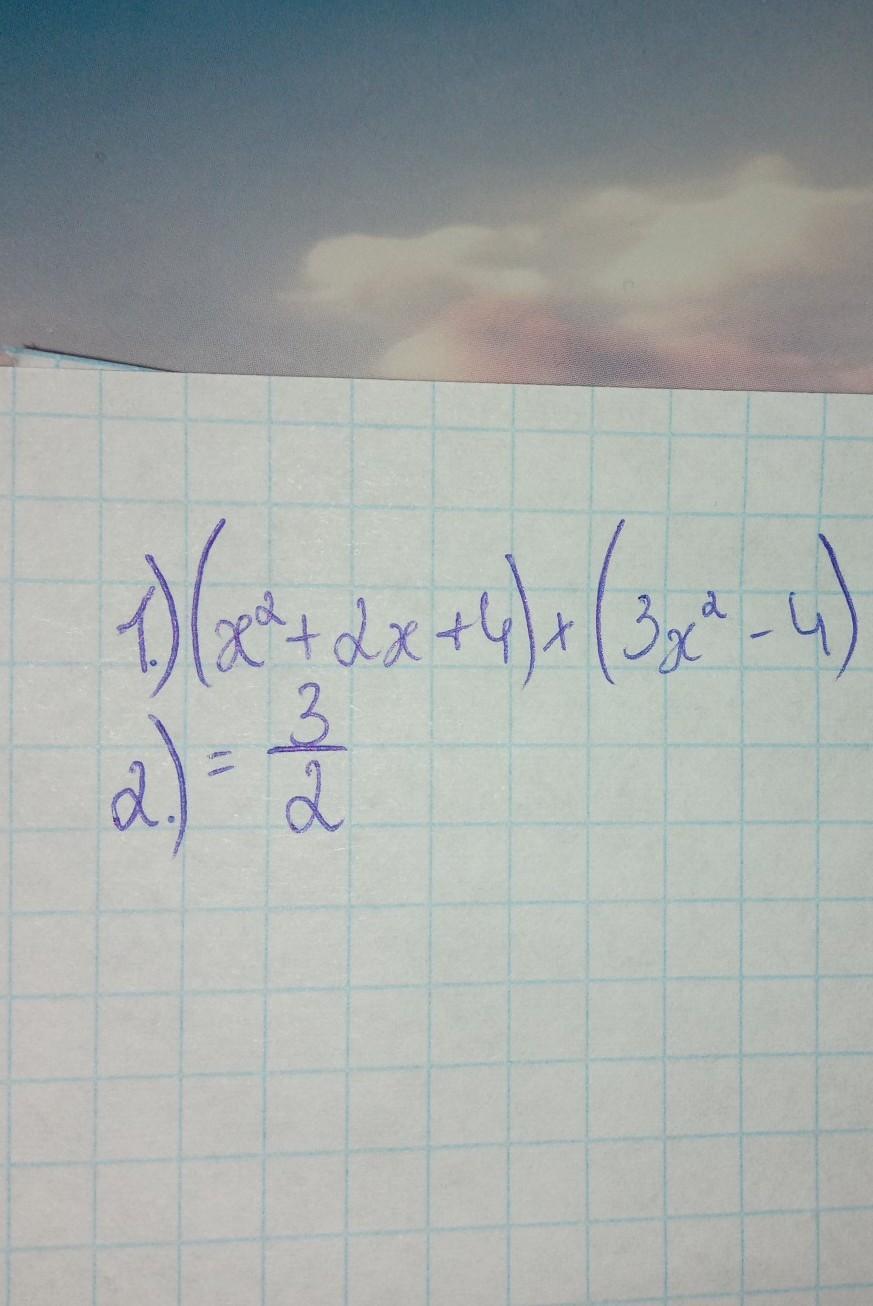 1.) (x² + 2x + 4) + (3x² - 4)
2.) = 3/2